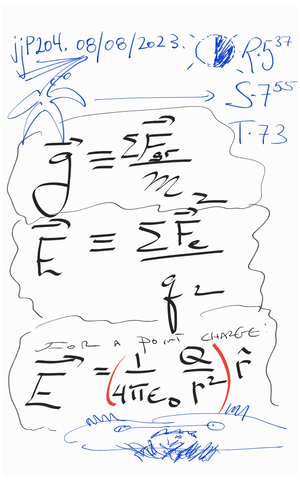 jjP204. 08/08/2023.
R·5³⁷
S·7⁵⁵
T·73
g⃗ ≡ ΣF⃗gr / m₂
E⃗ ≡ ΣF⃗e / q₂
FOR A POINT CHARGE:
E⃗ = (1/4πϵ₀ Q/r²) r̂